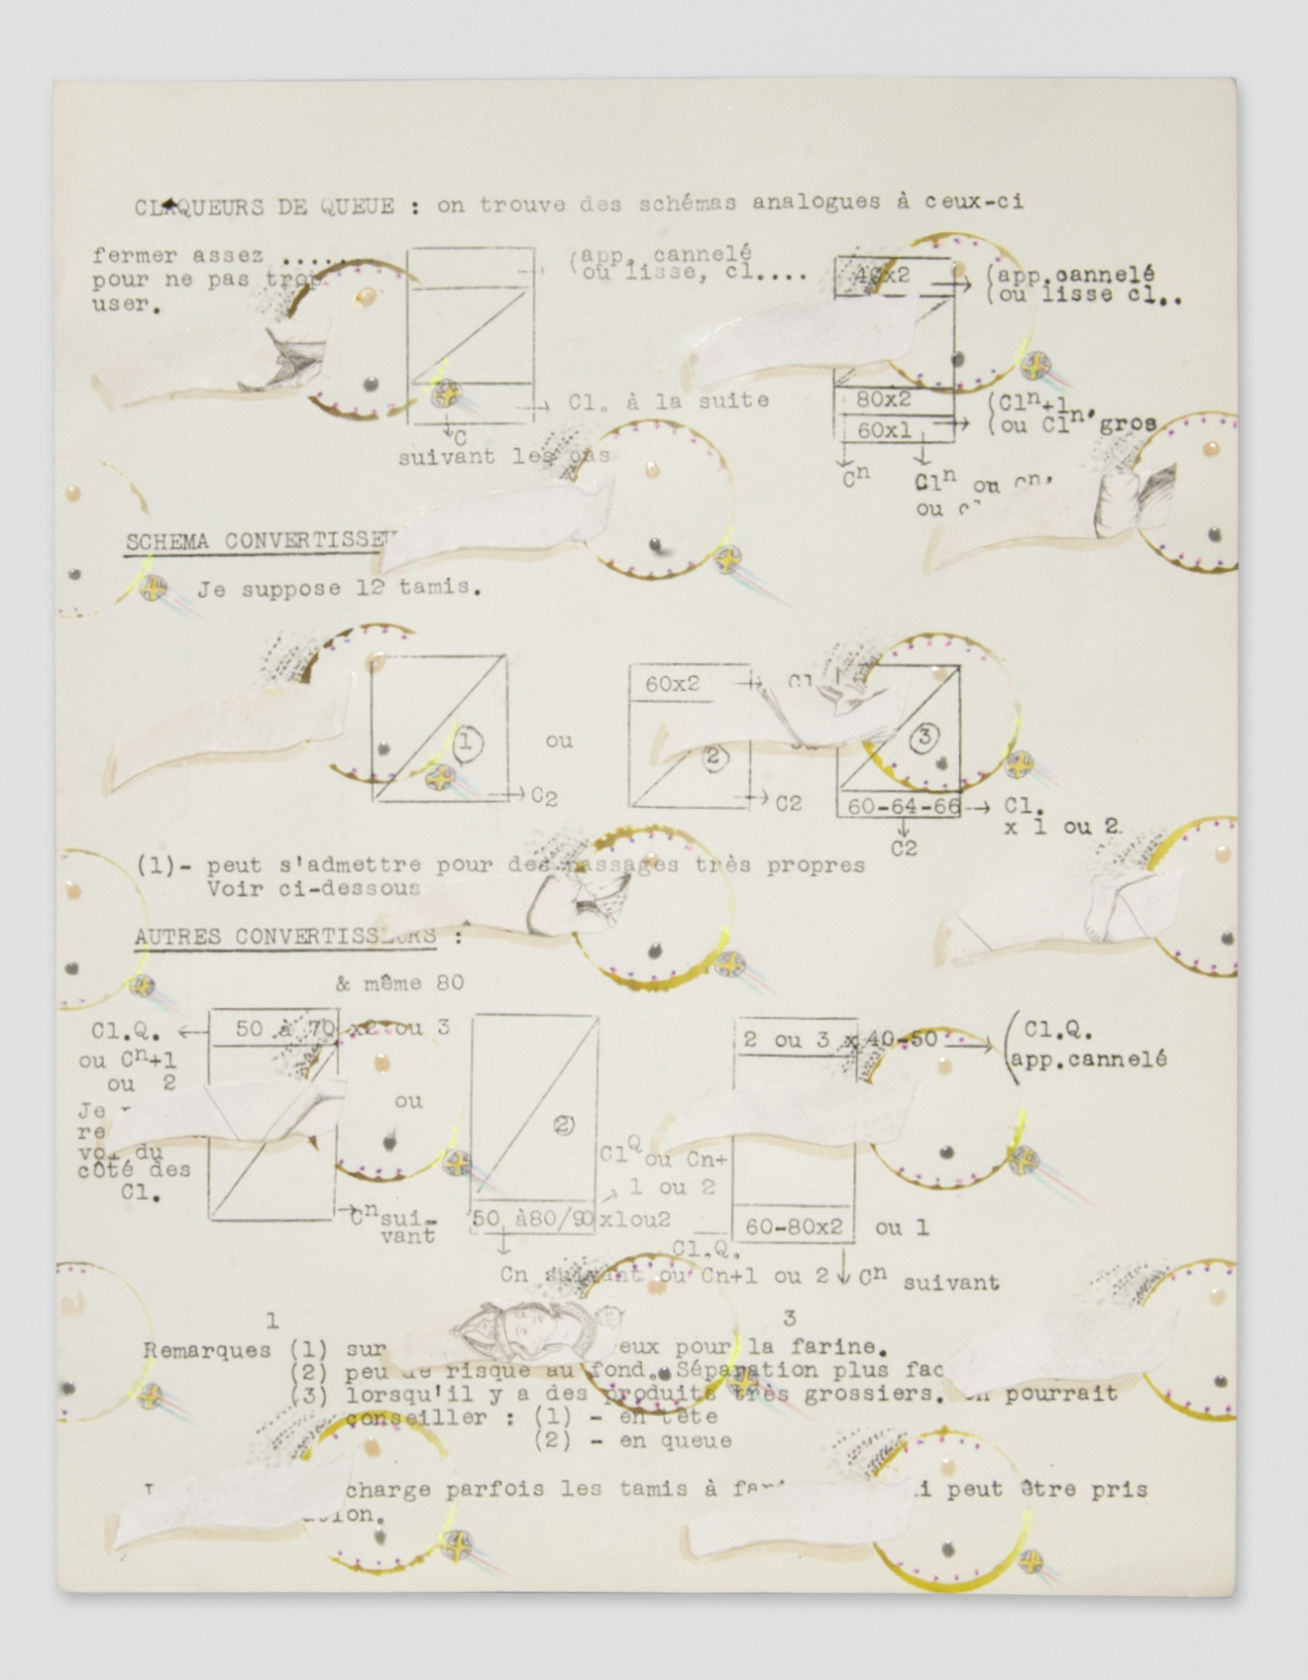 CLAQUEURS DE QUEUE : on trouve des schémas analogues à ceux-ci
fermer assez .....
pour ne pas trop
user.
(app. cannelé
(ou lisse, cl....
40x2
(app.cannelé
(ou lisse cl..
Cl. à la suite
C
suivant les cas
80x2
60x1
(Cln+1n'
(ou Cln' gros
Cn
Cln ou cn'
ou
SCHEMA CONVERTISSEU
Je suppose 12 tamis.
1
ou
C2
60x2
Cl
2
C2
3
60-64-66
Cl.
x 1 ou 2
C2
(1)- peut s'admettre pour des passages très propres
Voir ci-dessous
AUTRES CONVERTISSEURS :
& même 80
Cl.Q.
ou Cn+1
ou 2
Je
re
voi du
côté des
Cl.
50 à 70 x2 ou 3
ou
Cn sui-
vant
2
ClQ ou Cn+
1 ou 2
50 à80/90 x1ou2
Cl.Q.
Cn suivant ou Cn+1 ou 2
2 ou 3 x 40-50
(Cl.Q.
app.cannelé
60-80x2 ou 1
Cn suivant
1 3
Remarques (1) sur eux pour la farine.
(2) peu de risque au fond. Séparation plus fac
(3) lorsqu'il y a des produits très grossiers. On pourrait
conseiller : (1) - en tête
(2) - en queue
charge parfois les tamis à fari i peut être pris